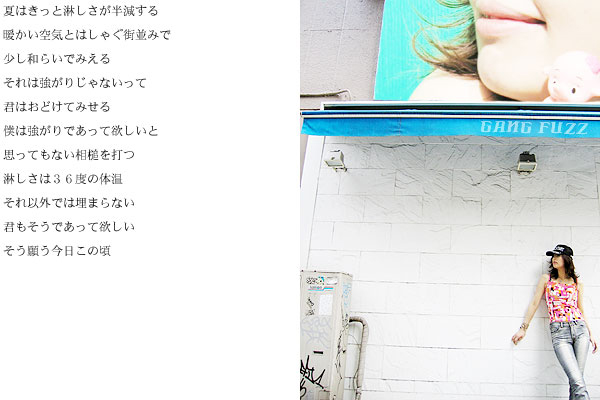 夏はきっと淋しさが半減する
暖かい空気とはしゃぐ街並みで
少し和らいでみえる
それは強がりじゃないって
君はおどけてみせる
僕は強がりであって欲しいと
思ってもない相槌を打つ
淋しさは３６度の体温
それ以外では埋まらない
君もそうであって欲しい
そう願う今日この頃
GANG FUZZ